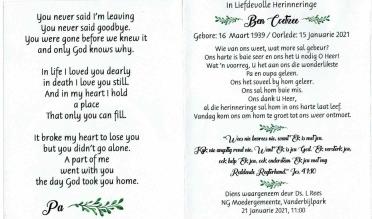 You never said I'm leaving
You never said goodbye.
You were gone before we knew it
and only God knows why.
In life I loved you dearly
in death I love you still.
And in my heart I hold
a place
That only you can fill.
It broke my heart to lose you
but you didn't go alone.
A part of me
went with you
the day God took you home.
Pa
In Liefdevolle Herinneringe
Ben Coetzee
Gebore: 16 Maart 1939 / Oorlede: 15 Januarie 2021
Wie van ons weet, wat more sal gebeur?
Ons harte is baie seer en ons het U nodig O Heer!
Wat 'n voorreg, U het aan ons die wonderlikste
Pa en oupa geleen.
Ons het soveel by hom geleer.
Ons sal hom baie mis.
Ons dank U Heer,
al die herinneringe sal hom in ons harte laat leef.
Vandag kom ons om hom te groet tot ons weer ontmoet.
"Wees nie bevrees nie, want Ek is met jou.
Kyk nie angstig rond nie, Want Ek is jou God. Ek versterk jou,
ook help Ek jou, ook ondersteun Ek jou met my
Reddende Regterhand." Jes. 41:10
Diens waargeneem deur Ds. L Rees
NG Moedergemeente, Vanderbijlpark
21 Januarie 2021, 11:00